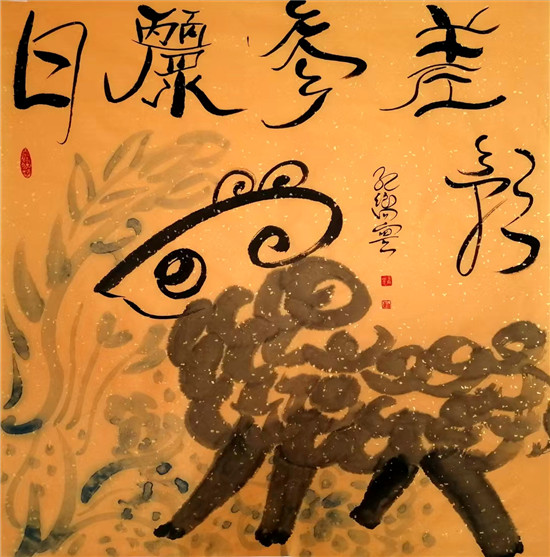 日麗參差
影